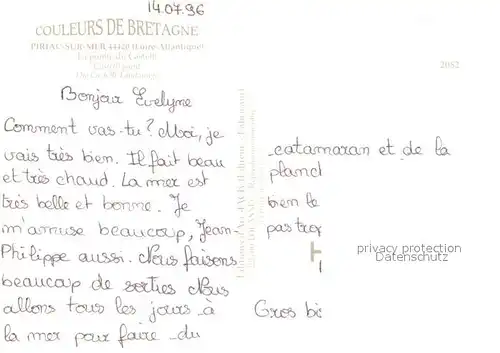 14.07.96
COULEURS DE BRETAGNE
PIRIAC-SUR-MER 44420 (Loire-Atlantique)
La pointe du Castelli
2052
Bonjour Evelyne
Comment vas-tu? Moi, je
vais très bien. Il fait beau
et très chaud. La mer est
très belle et bonne. Je
m'amuse beaucoup, Jean-
Philippe aussi. Nous faisons
beaucoup de sorties Nous
allons tous les jours à
la mer pour faire du
catamaran et de la
planch
bien le
pas trop
Gros bi
privacy protection
Datenschutz